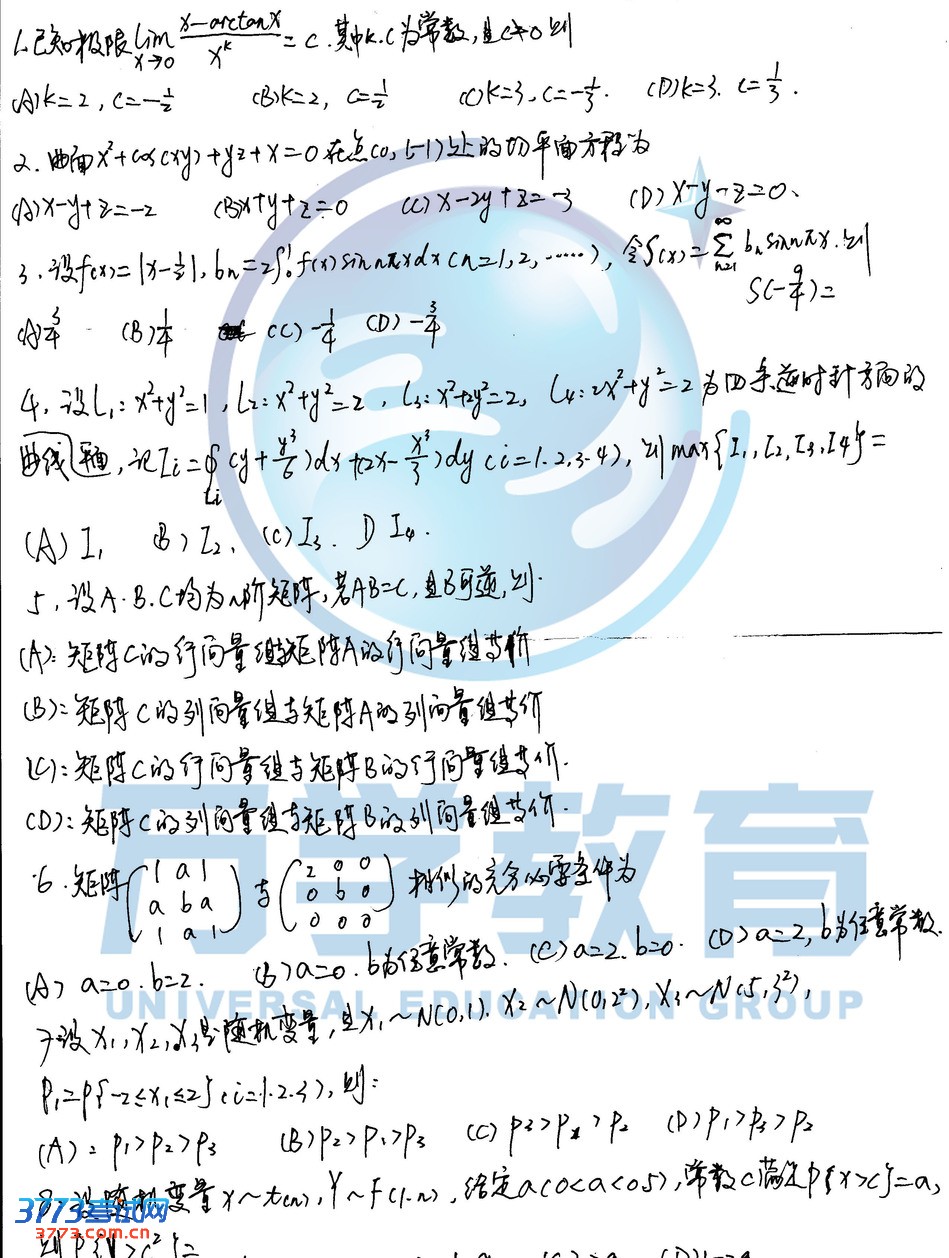 1.已知极限lim x→0 (x-arctanx)/x^k = c.其中k.c为常数,且c≠0则
(A)k=2, c=-1/2 (B)k=2, c=1/2 (C)k=3, c=-1/3. (D)k=3. c=1/3.
2.曲面x²+cos(xy)+yz+x=0在点(0,1,-1)处的切平面方程为
(A)x-y+z=-2 (B)x+y+z=0 (C)x-2y+z=-3 (D)x-y-z=0、
3.设f(x)=|x-1/2|, bn=2∫₀¹f(x)sinnπxdx(n=1,2,……), 令S(x)=∑(n=1→∞) bn sinnπx.则
S(-9/4)=
(A)3/4 (B)1/4 (C)-1/4 (D)-3/4
4.设L₁:x²+y²=1, L₂:x²+y²=2, L₃:x²+2y²=2, L₄:2x²+y²=2为四条逆时针方向的
曲线, 记Ii=∮Li (y+y³/6)dx+(2x-x³/3)dy(i=1.2.3.4), 则max{I₁,I₂,I₃,I₄}=
(A)I₁ (B)I₂. (C)I₃. D I₄.
5.设A.B.C均为n阶矩阵,若AB=C,且B可逆,则
(A):矩阵C的行向量组与矩阵A的行向量组等价
(B):矩阵C的列向量组与矩阵A的列向量组等价
(C):矩阵C的行向量组与矩阵B的行向量组等价.
(D):矩阵C的列向量组与矩阵B的列向量组等价.
同学教育
6.矩阵(1 a 1
a b a
1 a 1)与(2 0 0
0 b 0
0 0 0)相似的充分必要条件为
(A) a=0.b=2. (B)a=0.b为任意常数. (C)a=2.b=0. (D)a=2,b为任意常数.
UNIVERSAL EDUCATION GROUP
7.设X₁,X₂,X₃是随机变量,且X₁~N(0,1). X₂~N(0,2²), X₃~N(5,3²),
P₁=P{-2≤X₁≤2}(i=1.2.3),则:
(A):P₁>P₂>P₃ (B)P₂>P₁>P₃ (C) P₃>P₁>P₂ (D)P₁>P₃>P₂
8.设随机变量X~t(n), Y~F(1.n), 给定a(0<a<0.5), 常数c满足P{X>c}=a,
则P{Y>c²}=
3773考试网
3773.com.cn